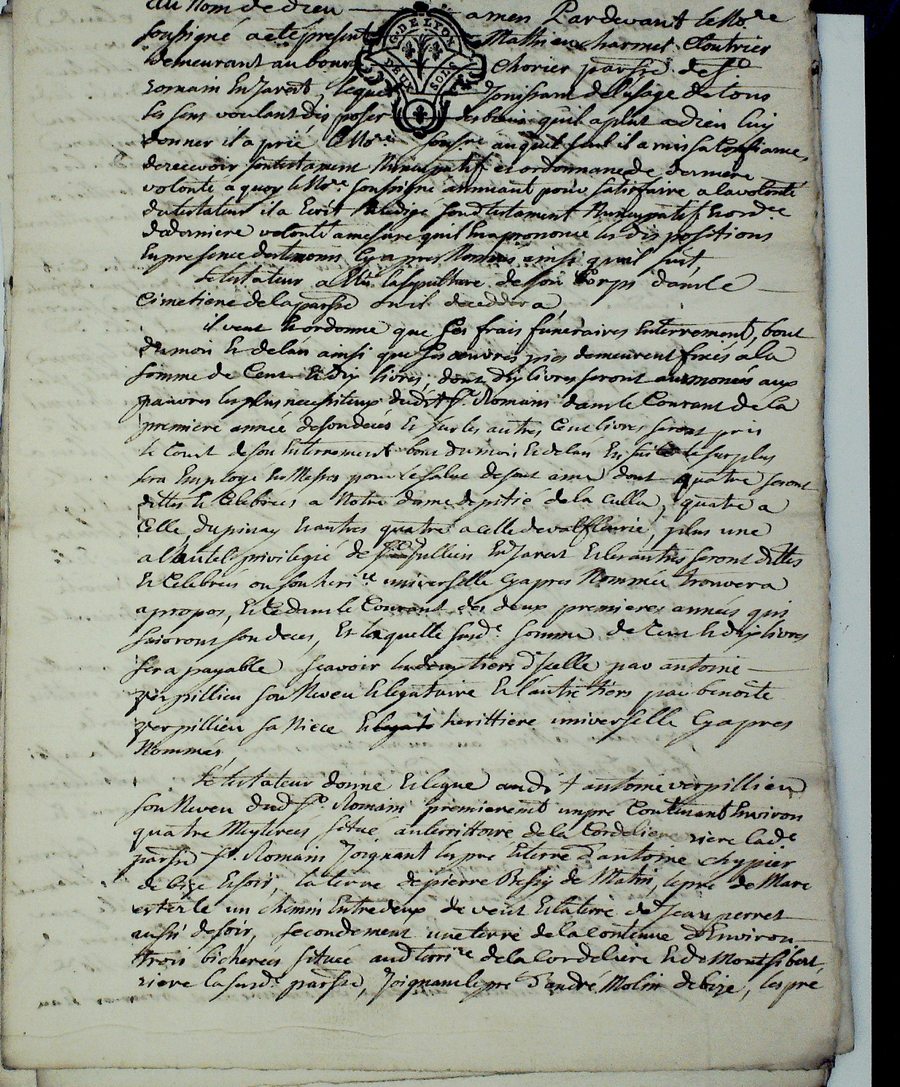 au nom de dieu amen Pardevant le No.re
soussigné a eté présent Mathieu charmet Cloutrier
demeurant au bourg chorier parsse de St
Romain En Jarest lequel Jouissant de l'usage de tous
les sens voulant disposer des biens qu'il a plut a dieu luy
donner il a prié le No.re soussné auquel seul il a mis sa Confiance,
de recevoir son testament Nuncupatif et ordonnance de derniere
volonté a quoy le No.re soussigné pour satisfaire a la volonté
du testateur il a Ecrit Redigé son testament Nuncupatif Et ord.ce
de derniere volonté a mesure qu'il En a prononcé les dispositions
En presence des temoins Cy apres Nommés ainsi qu'il suit,
le testateur a Elu la sepulture de son Corps dans le
Cimetiere de la parsse ou il decedera
il veut Et ordonne que Ses frais funéraires Enterrement, bout
du mois Et de l'an ainsi que Ses œuvres pies demeurent fixés a la
somme de Cent Et dix livres, dont dix livres seront aumonées aux
pauvres les plus necessiteux dudit St Romain dans le Courant de la
premiere année de son decés Et sur les autres Cent livres seront pris
le Cout de son Enterrement bout du mois Et de l'an Ensuite le surplus
sera Employé En Messes pour le salut de son ame dont quatre seront
dittes Et Celebrées a Notre dame de pitié de la Culla, quatre a
Celle du pinay Et autres quatre a celle de valfleurie, plus une
a l'autel privilegié de St Jullien En Jarest Et les autres seront dittes
Et Celebrées ou son heri.re universelle Cy apres Nommée trouvera
a propos, Et Ce dans le Courant des deux premieres années qui
suivront son decés, Et laquelle susd.e somme de Cent Et dix livres
sera payable scavoir les deux tiers d'Icelle par antoine
verpillieu son Neveu Et legataire Et l'autre tiers par benoite
verpillieu sa Niece Et herittiere universelle Cy apres
Nommés
le testateur donne Et legue aud.t antoine verpillieu
son Neveu dud St Romain premierement un pré Contenant Environ
quatre Meyterées situé au territtoire de la Cordeliere riere lad.e
parsse St Romain Joignant les pré Et terre d'antoine chypier
de bize Et soir, la terre de pierre Bessy de Matin, le pré de Marc
un chemin Entredeux de vent Et la terre de Jean perret
aussi de soir, secondement une terre de la Contenue d'Environ
trois bicherées située aud terri.re de la Cordeliere Et de Montsibert,
riere la susd.e parsse, Joignant le pré d'andré Molin de bize, les pré